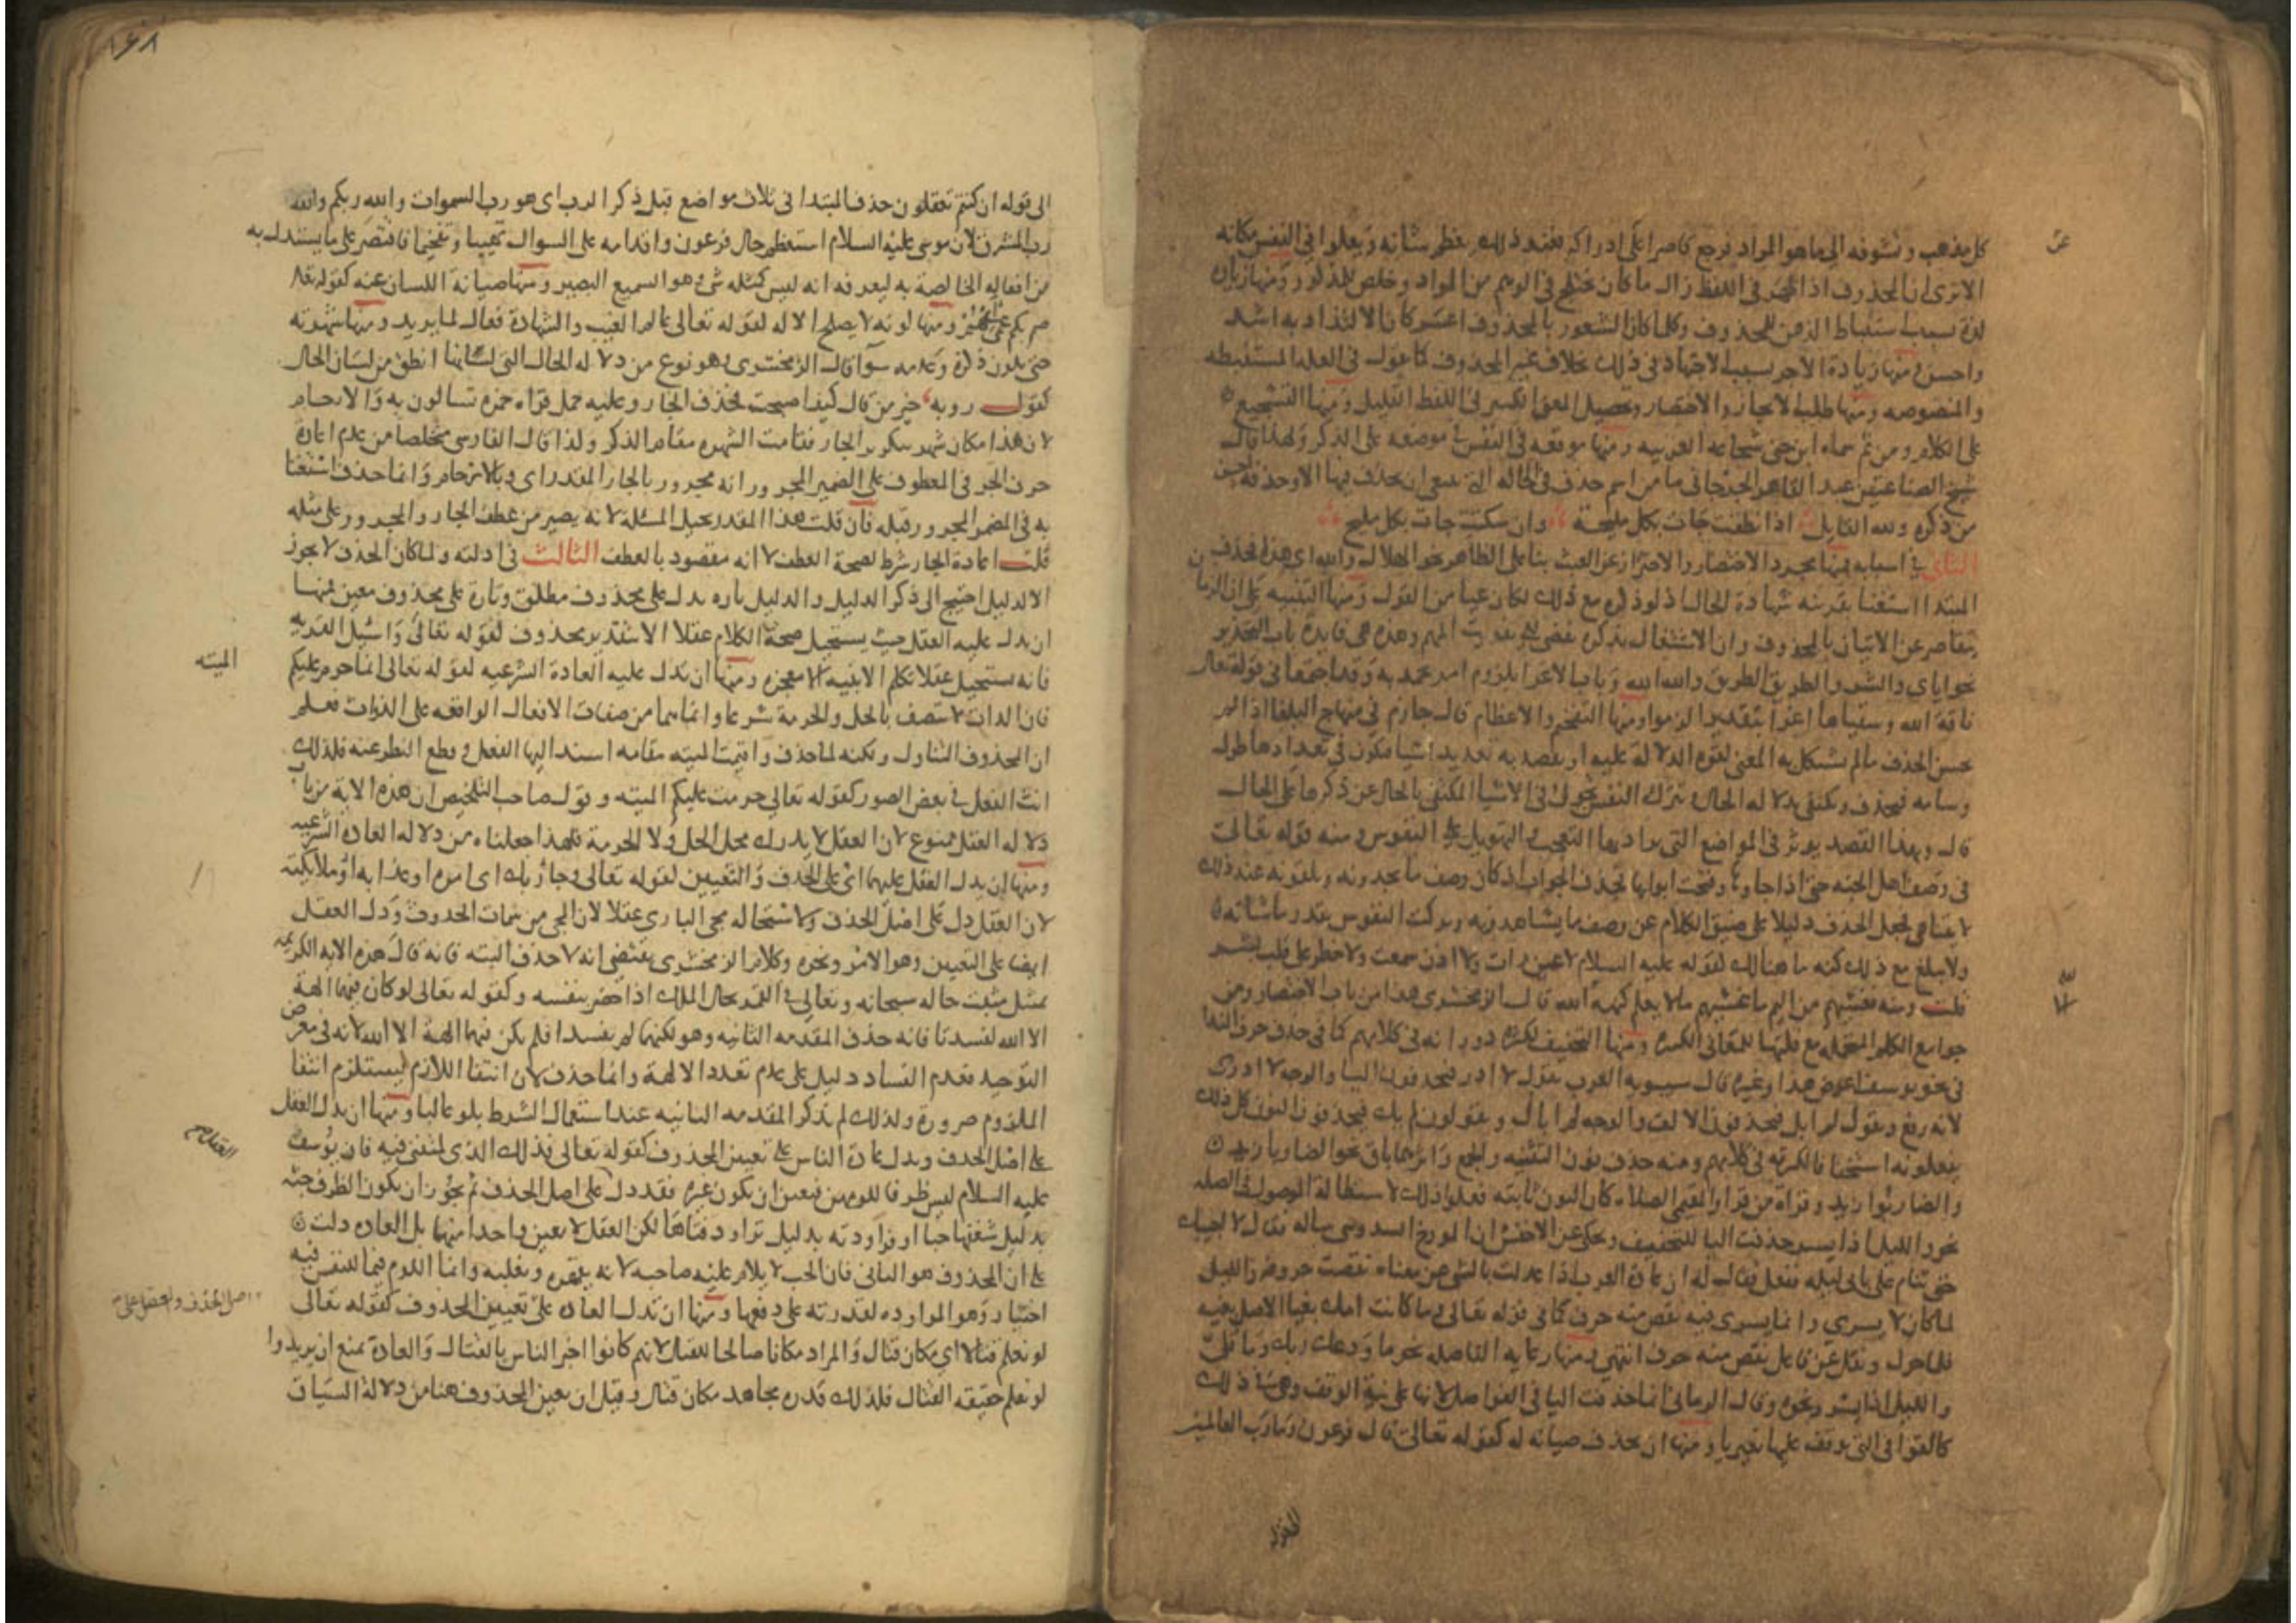 عن
كل مذهب وتشوفه الى ما هو المراد فيرجع قاصرا على ادراكه فعند ذلك يعظم شانه ويعلوا في النفس مكانه
الا ترى ان المحذوف اذا ظهر في اللفظ زال ما كان يختلج في الوهم من المراد وخلص للمذكور ومنها زيادة
لذة بسبب استنباط الذهن للمحذوف وكلما كان الشعور بالمحذوف اعسر كان الالتذاذ به اشد
واحسن ومنها زيادة الاجر بسبب الاجتهاد في ذلك بخلاف غير المحذوف كما نقول في العلة المستنبطه
والمنصوصه ومنها طلب الايجاز والاختصار وتحصيل المعنى الكثير في اللفظ القليل ومنها التشجيع
على الكلام ومن ثم سماه ابن جنى شجاعه العربيه ومنها موقعه في النفس في موقعه على الذكر ولهذا قال
شيخ الصناعتين عبد القاهر الجرجاني ما من اسم حذف في الحاله التي ينبغي ان يحذف فيها الا وحذفه احسن
من ذكره ولله القايل اذا نطقت جات بكل مليحة وان سكتت جات بكل مليح
الثاني في اسبابه فمنها مجرد الاختصار والاحتراز عن العبث بنا على الظاهر نحو الهلال والله اي هذا فحذف
المبتدا استغنا بقرينه شهادة الحال اذ لو ذكره مع ذلك لكان عبثا من القول ومنها التنبيه على ان الزمان
يتقاصر عن الاتيان بالمحذوف وان الاشتغال بذكره يفضي الى تفويت المهم وهذه هي فايدة باب التحذير
نحو اياي والشر والطريق الطريق والله الله وباب الاغرا بلزوم امر يحمد به وقد اجتمعا في قوله تعالى
ناقة الله وسقياها اغرا بتقدير الزموا ومنها التفخيم والاعظام قال حازم في منهاج البلغا انما
يحسن الحذف ما لم يشكل به المعنى لقوة الدلالة عليه او يقصد به تعديد اشيا فيكون في تعدادها طول
وسامه فيحذف ويكتفى بدلاله الحال وتترك النفس تجول في الاشيا المكتفى بالحال عن ذكرها على الحال
قال وبهذا القصد يوثر في المواضع التي يراد بها التعجب والتهويل على النفوس ومنه قوله تعالى
في وصف اهل الجنه حتى اذا جاوها وفتحت ابوابها فحذف الجواب اذ كان وصف ما يجدونه ويلقونه عند ذلك
لا يتناهى فجعل الحذف دليلا على ضيق الكلام عن وصف ما يشاهدونه وتركت النفوس تقدر ما شاته
ولا يبلغ مع ذلك كنه ما هنالك لقوله عليه السلام لا عين رات ولا اذن سمعت ولا خطر على قلب بشر
قلت ومنه فغشيهم من اليم ما غشيهم ما لا يعلم كنهه الا الله قال الزمخشري هذا من باب الاختصار ومن
جوامع الكلم المتحمله مع قلتها للمعاني الكثيره ومنها التخفيف لكثرة دورانه في كلامهم كما في حذف حرف الندا
في نحو يوسف اعرض عن هذا وغيره قال سيبويه العرب تقول لا ادر فيحذفون اليا والوجه لا ادرى
لانه رفع وتقول لم ابل فيحذفون الالف والوجه لم ابال ويقولون لم يك فيحذفون النون كل ذلك
يفعلونه استخفافا لكثرته في كلامهم ومنه حذف نون التثنيه والجمع واثرها باق نحو الضاربا زيد
والضاربوا زيد وقراة من قرا والمقيمى الصلاه كان النون ثابته فعلوا ذلك لاستطالة الموصول في الصله
نحو والليل اذا يسر حذفت اليا للتخفيف ويحكى عن الاخفش ان المورخ السدوسي ساله فقال لا اجيبك
حتى تنام على بابي ليله ففعل فقال له ان عادة العرب اذا عدلت بالشي عن معناه نقصت حروفه والليل
لما كان لا يسري وانما يسري فيه نقص منه حرف كما في قوله تعالى وما كانت امك بغيا الاصل بغيه
فلما حول ونقل عن فاعل نقص منه حرف انتهى ومنها رعاية الفاصله نحو ما ودعك ربك وما قلى
والليل اذا يسر ونحوه وقال الرماني انما حذفت اليا في الفواصل لانها على نية الوقف وهي في ذلك
كالقوافي التي يوقف عليها بغير يا ومنها ان يحذف صيانه له كقوله تعالى قال فرعون وما رب العالمين
١٤٨
الى قوله ان كنتم تعقلون حذف المبتدا في ثلاث مواضع قبل ذكر الرب اي هو رب السموات والله ربكم والله
رب المشرق لان موسى عليه السلام استعظم حال فرعون واقدامه على السوال تهيبا وتفخيما فاقتصر على ما يستدل به
من افعاله الخاصة به ليعرفه انه ليس كمثله شي وهو السميع البصير ومنها صيانة اللسان عنه كقوله تعالى
صم بكم عمى ومنها كونه لا يصلح الا له كقوله تعالى عالم الغيب والشهادة فعال لما يريد ومنها شهرته
حتى يكون ذكره وعدمه سوا قال الزمخشري وهو نوع من دلاله الحال التي لسانها انطق من لسان الحال
كقول روبه خير من قال كيف اصبحت بحذف الجار وعليه حمل قراه حمزه تسالون به والارحام
لان هذا مكان شهر بتكرير الجار فقامت الشهره مقام الذكر ولذا قال الفارسي متخلصا من عدم اعادة
حرف الجر في المعطوف على الضمير المجرور انه مجرور بالجار المقدر اي وبالارحام وانما حذف استغنا
به في المضمر المجرور قبله فان قلت هذا المقدر يحيل المسئلة لانه يصير من عطف الجار والمجرور على مثله
قلت اعادة الجار شرط لصحة العطف لا انه مقصود بالعطف الثالث في ادلته ولما كان الحذف لا يجوز
الا لدليل احتيج الى ذكر الدليل والدليل تاره يدل على محذوف مطلق وتارة على محذوف معين فمنها
ان يدل عليه العقل حيث يستحيل صحة الكلام عقلا الا بتقدير محذوف كقوله تعالى واسئل القريه
فانه يستحيل عقلا تكلم الابنيه الا معجزه ومنها ان تدل عليه العادة الشرعيه كقوله تعالى انما حرم عليكم
الميته
فان الذات لا تتصف بالحل والحرمة شرعا وانما هما من صفات الافعال الواقعه على الذوات فعلم
ان المحذوف التناول ولكنه لما حذف واقيمت الميته مقامه اسند اليها الفعل وقطع النظر عنه فلذلك
انث الفعل في بعض الصور كقوله تعالى حرمت عليكم الميته وقول صاحب التلخيص ان هذه الاية من باب
دلاله العقل ممنوع لان العقل لا يدرك محل الحل ولا الحرمة فلهذا جعلناه من دلاله العادة الشرعيه
ومنها ان يدل العقل عليهما اي على الحذف والتعيين كقوله تعالى وجا ربك اي امره او عذابه او ملايكته
لان العقل دل على اصل الحذف ولاستحاله مجى الباري عقلا لان المجى من سمات الحدوث ودل العقل
ايضا على التعيين وهو الامر ونحوه وكلام الزمخشري يقتضي انه لا حذف البته فانه قال هذه الايه الكريمه
تمثيل مثلت حاله سبحانه وتعالى في القهر بحال الملك اذا حضر بنفسه وكقوله تعالى لو كان فيهما الهة
الا الله لفسدتا فانه حذف المقدمه الثانيه وهو لكنهما لم يفسدا فلم يكن فيهما الهة الا الله لانه في معرض
التوحيد فعدم الفساد دليل على عدم تعدد الالهة وانما حذف لان انتفا اللازم يستلزم انتفا
الملزوم ضرورة ولذلك لم تذكر المقدمه الثانيه عند استعمال الشرط بلو غالبا ومنها ان يدل العقل
على اصل الحذف ويدل عادة الناس على تعيين المحذوف كقوله تعالى فذلك الذي لمتنني فيه فان يوسف
عليه السلام ليس ظرفا للومهن فتعين ان يكون غيره فقد دل على اصل الحذف ثم يجوز ان يكون الظرف حبه
بدليل شغفها حبا او مراودته بدليل تراود فتاها لكن العقل لا يعين واحدا منهما بل العادة دلت
على ان المحذوف هو الثاني فان الحب لا يلام عليه صاحبه لانه يقهره ويغلبه وانما اللوم فيما للنفس فيه
اختيار وهو المراوده لقدرته على دفعها ومنها ان تدل العادة على تعيين المحذوف كقوله تعالى
اصل الحذف والعقل على
لو نعلم قتالا اي مكان قتال والمراد مكانا صالحا للقتال لانهم كانوا اخبر الناس بالقتال والعادة تمنع ان يريدوا
لو نعلم حقيقه القتال فلذلك قدره مجاهد مكان قتال وقيل ان تعين المحذوف هنا من دلالة السياق